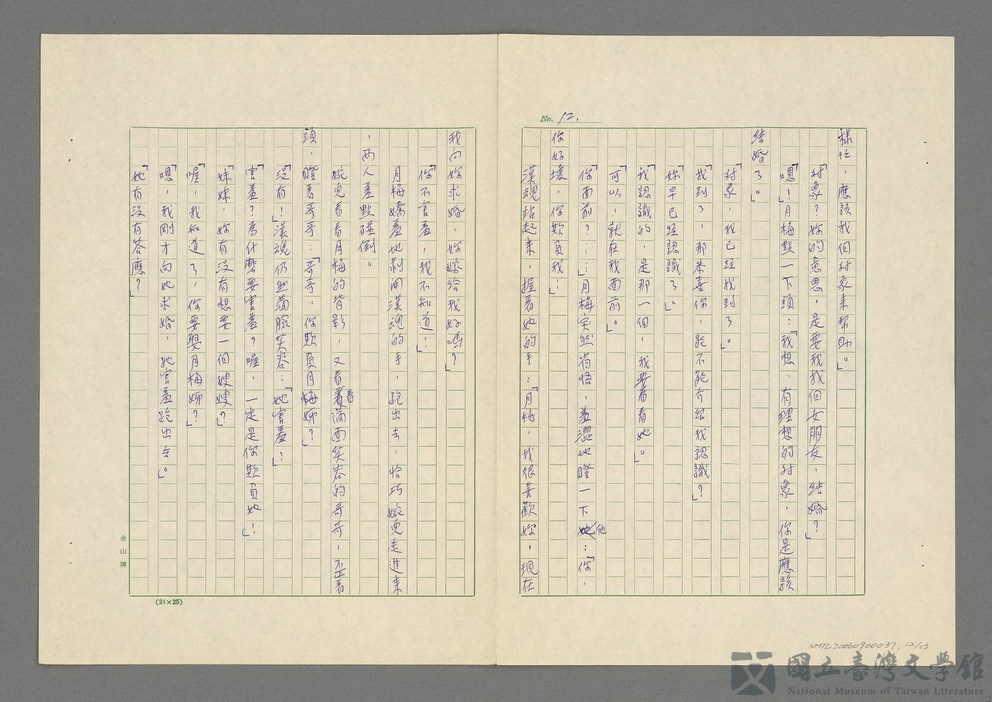 No. 12.
樣忙，應該找個對象來幫助。」
「對象？妳的意思，是要我找個女朋友，結婚？」
「嗯！」月梅點一下頭：「我想，有理想的對象，你是應該
結婚了。」
「對象，我已經找到了。」
「找到了，那恭喜你，能不能介紹我認識？」
「妳早已經認識了。」
「我認識的，是那一個，我要看看她。」
「可以，就在我面前。」
「你面前？……」月梅突然省悟，羞澀地瞪一下他：「你，
你好壞，你欺負我！」
漢魂站起來，握著她的手：「月梅，我很喜歡妳，現在
我向妳求婚，妳嫁給我好嗎？」
「你不害羞，我不知道！」
月梅嬌羞地剝開漢魂的手，跑出去，恰巧婉兒走進來
，兩人差點碰倒。
婉兒看看月梅的背影，又看看滿面笑容的哥哥，歪著
頭，瞪著哥哥：「哥哥，你欺負月梅姊？」
「沒有！」漢魂仍然滿臉笑容：「她害羞！」
「害羞？為什麼要害羞？喔，一定是你欺負她！」
「妹妹，妳有沒有想要一個嫂嫂？」
「喔，我知道了，你要娶月梅姊？」
「嗯，我剛才向她求婚，她害羞跑出去。」
「她有沒有答應？」
金山牌
(24×25)
NMTL20060900037, 12/13
國立臺灣文學館
National Museum of Taiwan Literature